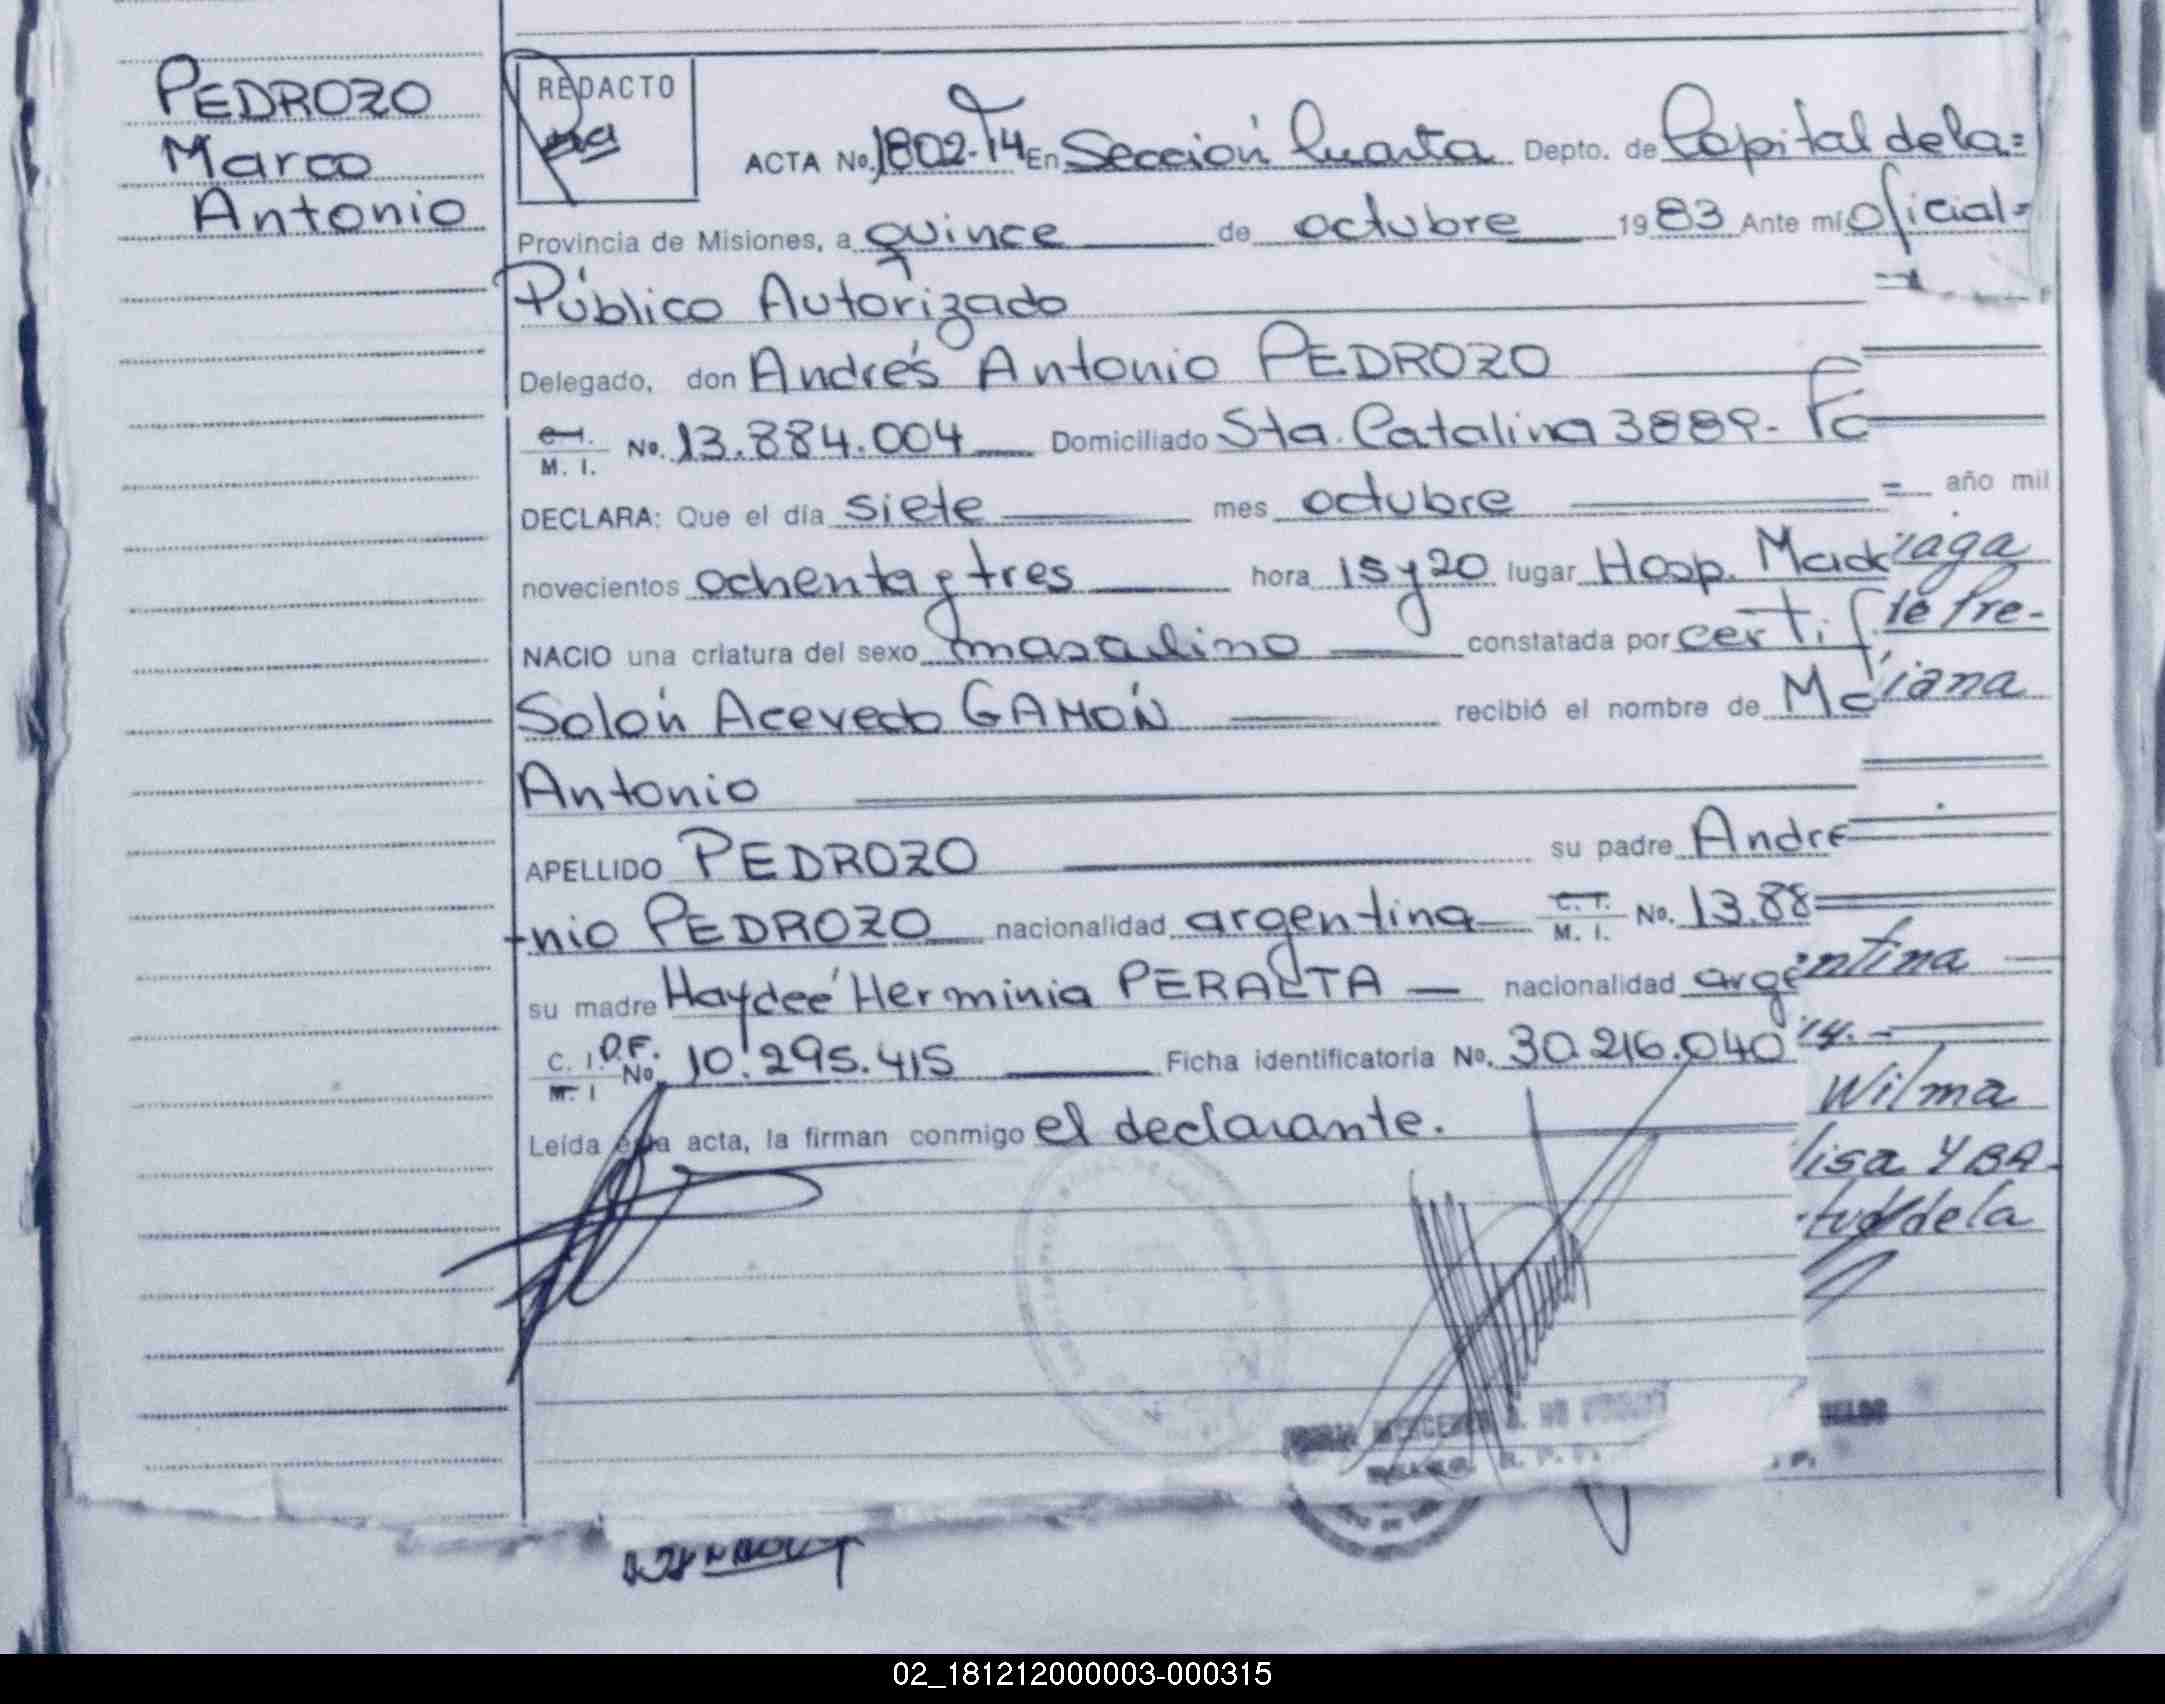 PEDROZO
Marco
Antonio
REDACTO
ACTA No. 1802-T4 En Sección Cuarta Depto. de Capital de la=
Provincia de Misiones, a quince de octubre 1983 Ante mí Oficial=
Público Autorizado
Delegado, don Andrés Antonio PEDROZO
C.I. M. I. No. 13.884.004 Domiciliado Sta. Catalina 3889-
DECLARA: Que el día siete mes octubre año mil
novecientos ochenta y tres hora 15 y 20 lugar Hosp. Mad riaga
NACIO una criatura del sexo masculino constatada por certif te Pre-
Solón Acevedo GAMÓN recibió el nombre de Ma iana
Antonio
APELLIDO PEDROZO su padre André
-nio PEDROZO nacionalidad argentina C.I. M. I. No. 13.88
su madre Haydeé Herminia PERALTA nacionalidad arge ntina
C. I. M. I D.F. No. 10.295.415 Ficha identificatoria No. 30.216.040
Leída esta acta, la firman conmigo el declarante.
Wilma
lisa YBA-
tud de la
02_181212000003-000315